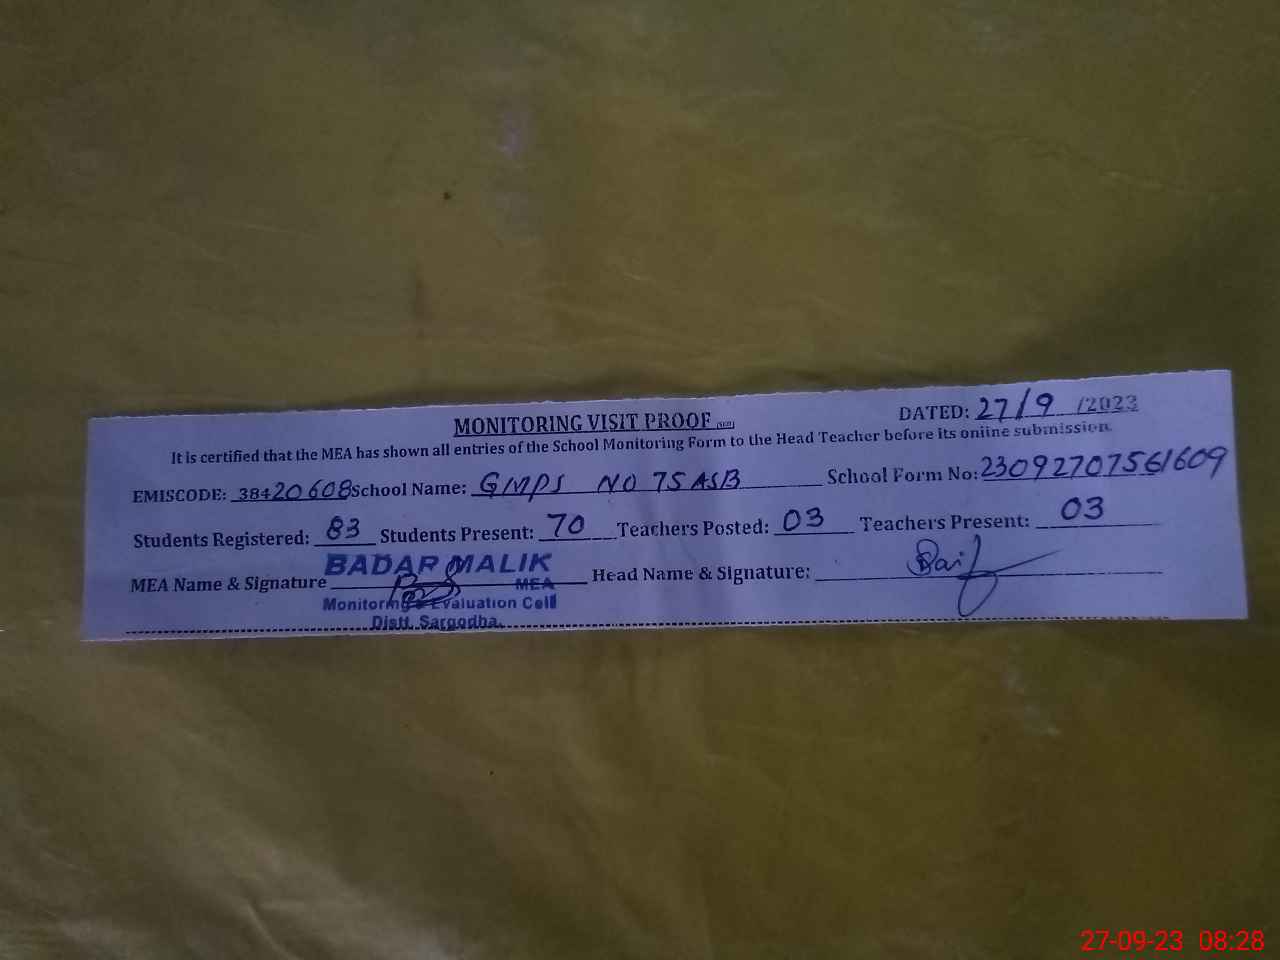 MONITORING VISIT PROOF
DATED: 27/9 /2023
It is certified that the MEA has shown all entries of the School Monitoring Form to the Head Teacher before its online submission.
EMISCODE: 38420608 School Name: GMPS NO 75 ASB School Form No: 23092707561609
Students Registered: 83 Students Present: 70 Teachers Posted: 03 Teachers Present: 03
MEA Name & Signature Head Name & Signature:
BADAR MALIK
MEA
Monitoring & Evaluation Cell
Distt. Sargodha.
27-09-23 08:28